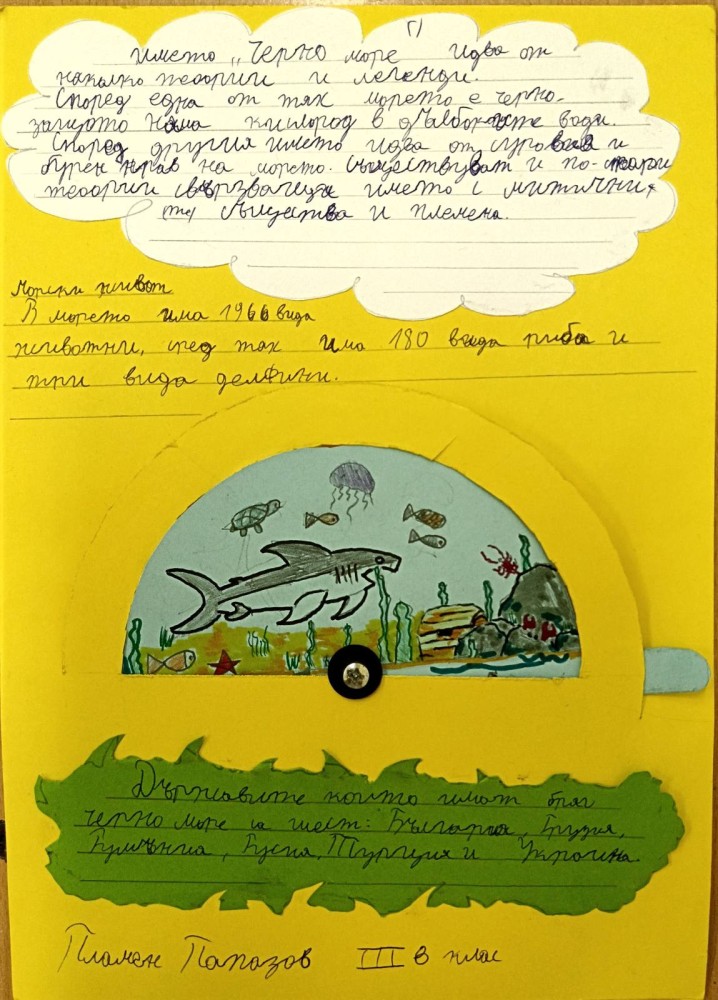 г)
името „Черно море идва от
няколко теории и легенди.
Според една от тях морето е черно,
защото няма кислород в дълбоките води.
Според другия името идва от суровия и
бурен нрав на морето. Съществуват и по-стари
теории свързващи името с митични
те същества и племена.
Морски живот
В морето има 1966 вида
животни, сред тях има 180 вида риба и
три вида делфини.
Държавите които имат бряг
черно море са шест: България, Грузия,
Румъния, Русия, Турция и Украйна.
Пламен Папазов III в клас